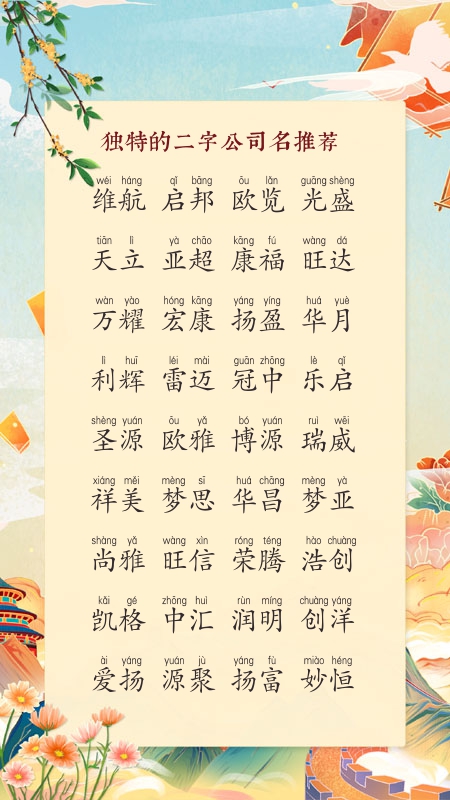 独特的二字公司名推荐
wéi háng qǐ bāng ōu lǎn guāng shèng
维航 启邦 欧览 光盛
tiān lì yà chāo kāng fú wàng dá
天立 亚超 康福 旺达
wàn yào hóng kāng yáng yíng huá yuè
万耀 宏康 扬盈 华月
lì huī léi mài guān zhōng lè qǐ
利辉 雷迈 冠中 乐启
shèng yuán ōu yǎ bó yuán ruì wēi
圣源 欧雅 博源 瑞威
xiáng měi mèng sī huá chāng mèng yà
祥美 梦思 华昌 梦亚
shàng yǎ wàng xìn róng téng hào chuàng
尚雅 旺信 荣腾 浩创
kǎi gé zhōng huì rùn míng chuàng yáng
凯格 中汇 润明 创洋
ài yáng yuán jù yáng fù miào héng
爱扬 源聚 扬富 妙恒